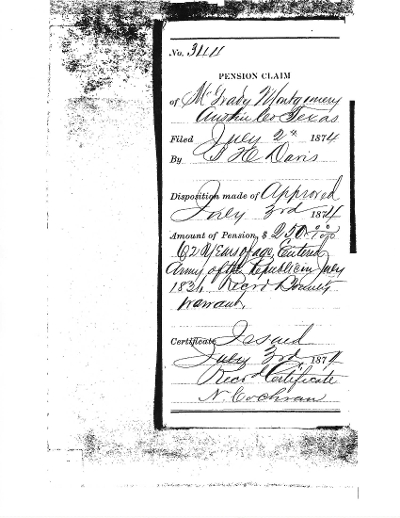 No. 3444
PENSION CLAIM
of McGrady Montgomery
Austin Co Texas
Filed July 2nd 1874
By J H Davis
Disposition made of Approved
July 3rd 1874
Amount of Pension, $ 250.00
62 Years of age, Entered
Army of the Republic in July
1836 Recd Bounty
Warrant,
Certificate Issued
July 3rd 1874
Recd Certificate
N. Cochran